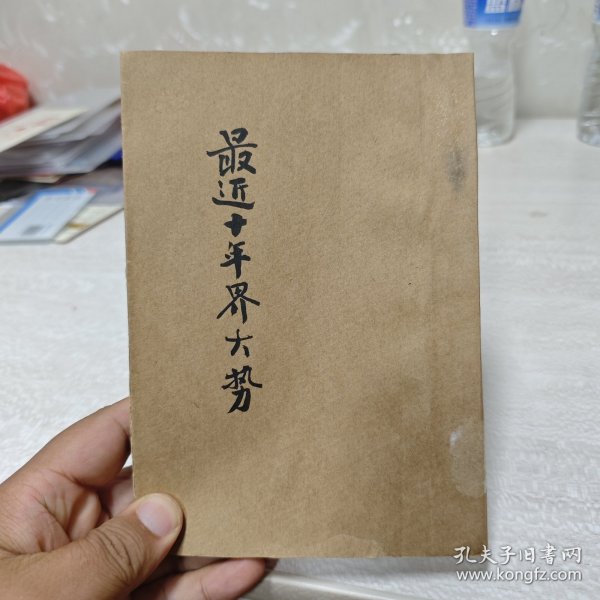 最近十年界大势
孔夫子旧書网
www.kongfz.com